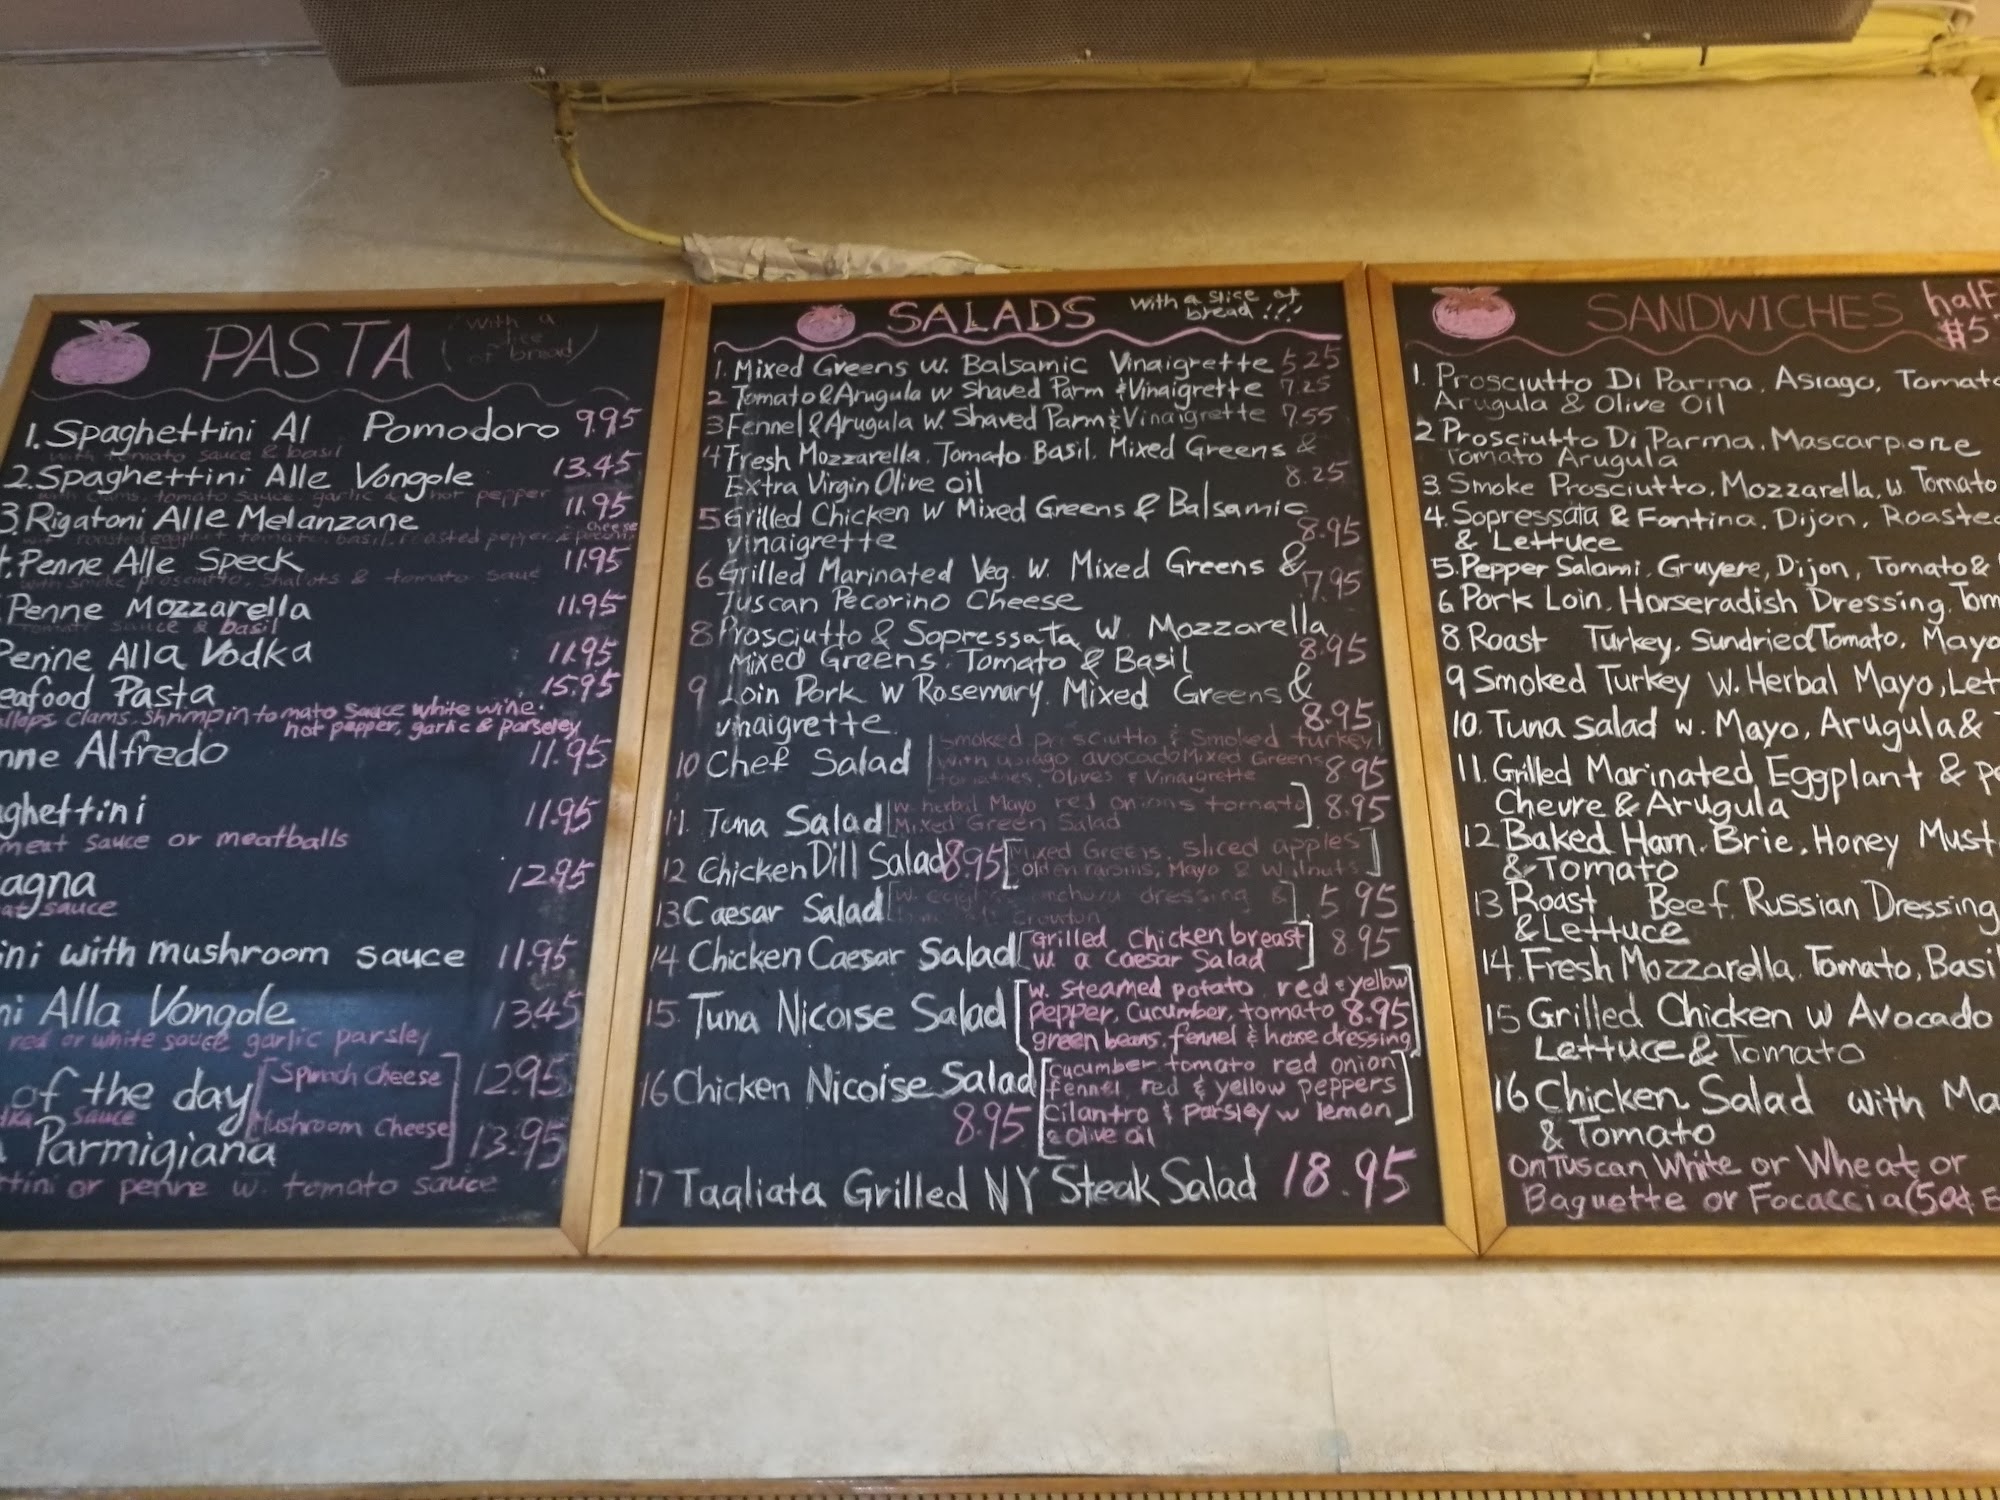 PASTA (with a slice of bread)
1. Spaghettini Al Pomodoro 9.95
with tomato sauce & basil
2. Spaghettini Alle Vongole 13.45
with clams, tomato sauce, garlic & hot pepper
3 Rigatoni Alle Melanzane 11.95
roasted eggplant tomato, basil, roasted pepper & cheese
Penne Alle Speck 11.95
with smoke prosciutto, shallots & tomato
Penne Mozzarella 11.95
tomato sauce & basil
Penne Alla Vodka 11.95
eafood Pasta 15.95
allops clams, shrimp in tomato sauce white wine.
hot pepper, garlic & parseley
nne Alfredo 11.95
ghettini 11.95
meat sauce or meatballs
agna 12.95
at sauce
ini with mushroom sauce 11.95
ni Alla Vongole 13.45
red or white sauce garlic parsley
of the day [Spinach Cheese 12.95
ka sauce Mushroom Cheese]
Parmigiana 13.95
tini or penne w. tomato sauce
SALADS with a slice of bread!!!
1. Mixed Greens w. Balsamic Vinaigrette 5.25
2 Tomato & Arugula w Shaved Parm & Vinaigrette 7.25
3 Fennel & Arugula w. Shaved Parm & Vinaigrette 7.55
4 Fresh Mozzarella, Tomato Basil, Mixed Greens &
Extra Virgin Olive oil 8.25
5 Grilled Chicken w Mixed Greens & Balsamic
vinaigrette 8.95
6 Grilled Marinated Veg. w. Mixed Greens &
Tuscan Pecorino Cheese 7.95
8 Prosciutto & Sopressata w. Mozzarella
Mixed Greens, Tomato & Basil 8.95
9 Loin Pork w Rosemary, Mixed Greens &
vinaigrette. 8.95
10 Chef Salad [smoked prosciutto & smoked turkey]
with asiago avocado Mixed Greens
tomatoes, olives & vinaigrette 8.95
11. Tuna Salad [w. herbal Mayo red onions tomato] 8.95
Mixed Green Salad
12 Chicken Dill Salad 8.95 [Mixed Greens, sliced apples]
golden raisins, Mayo & Walnuts
13 Caesar Salad [w. dressing &] 5.95
Crouton
14 Chicken Caesar Salad [Grilled Chicken breast] 8.95
w. a caesar Salad
15. Tuna Nicoise Salad [w. steamed potato, red & yellow
pepper, cucumber, tomato 8.95
green beans, fennel & house dressing]
16 Chicken Nicoise Salad [cucumber tomato red onion
fennel, red & yellow peppers
8.95 cilantro & parsley w lemon]
& olive oil
17 Tagliata Grilled NY Steak Salad 18.95
SANDWICHES half
$5
1. Prosciutto Di Parma, Asiago, Tomato
Arugula & Olive Oil
2 Prosciutto Di Parma, Mascarpone
Tomato Arugula
3. Smoke Prosciutto, Mozzarella, w. Tomato
4. Sopressata & Fontina, Dijon, Roasted
& Lettuce
5. Pepper Salami, Gruyere, Dijon, Tomato &
6 Pork Loin, Horseradish Dressing, Tom
8. Roast Turkey, Sundried Tomato, Mayo
9 Smoked Turkey w. Herbal Mayo, Let
10. Tuna salad w. Mayo, Arugula &
11. Grilled Marinated Eggplant & p
Chevre & Arugula
12 Baked Ham, Brie, Honey Must
& Tomato
13 Roast Beef, Russian Dressing
& Lettuce
14. Fresh Mozzarella, Tomato, Basi
15 Grilled Chicken w Avocado
Lettuce & Tomato
16 Chicken Salad with Ma
& Tomato
on Tuscan White or Wheat or
Baguette or Focaccia (50¢ E